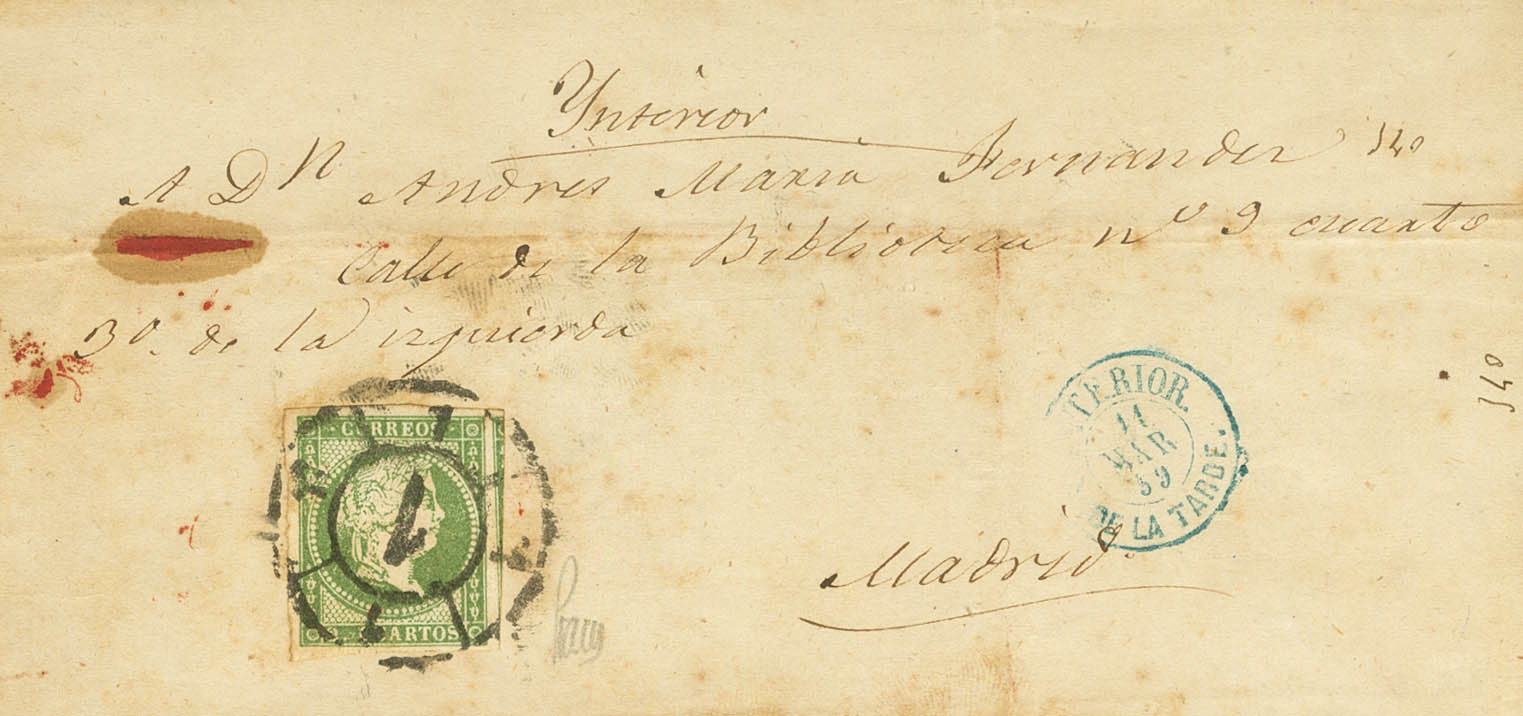 Ynterior
A Dn Andres Maria Fernandez 140
Calle de la Biblioteca no 9 cuarto
3o. de la izquierda
CORREOS
1
CUARTOS
TERIOR.
11
MAR
59
DE LA TARDE.
Madrid.
140